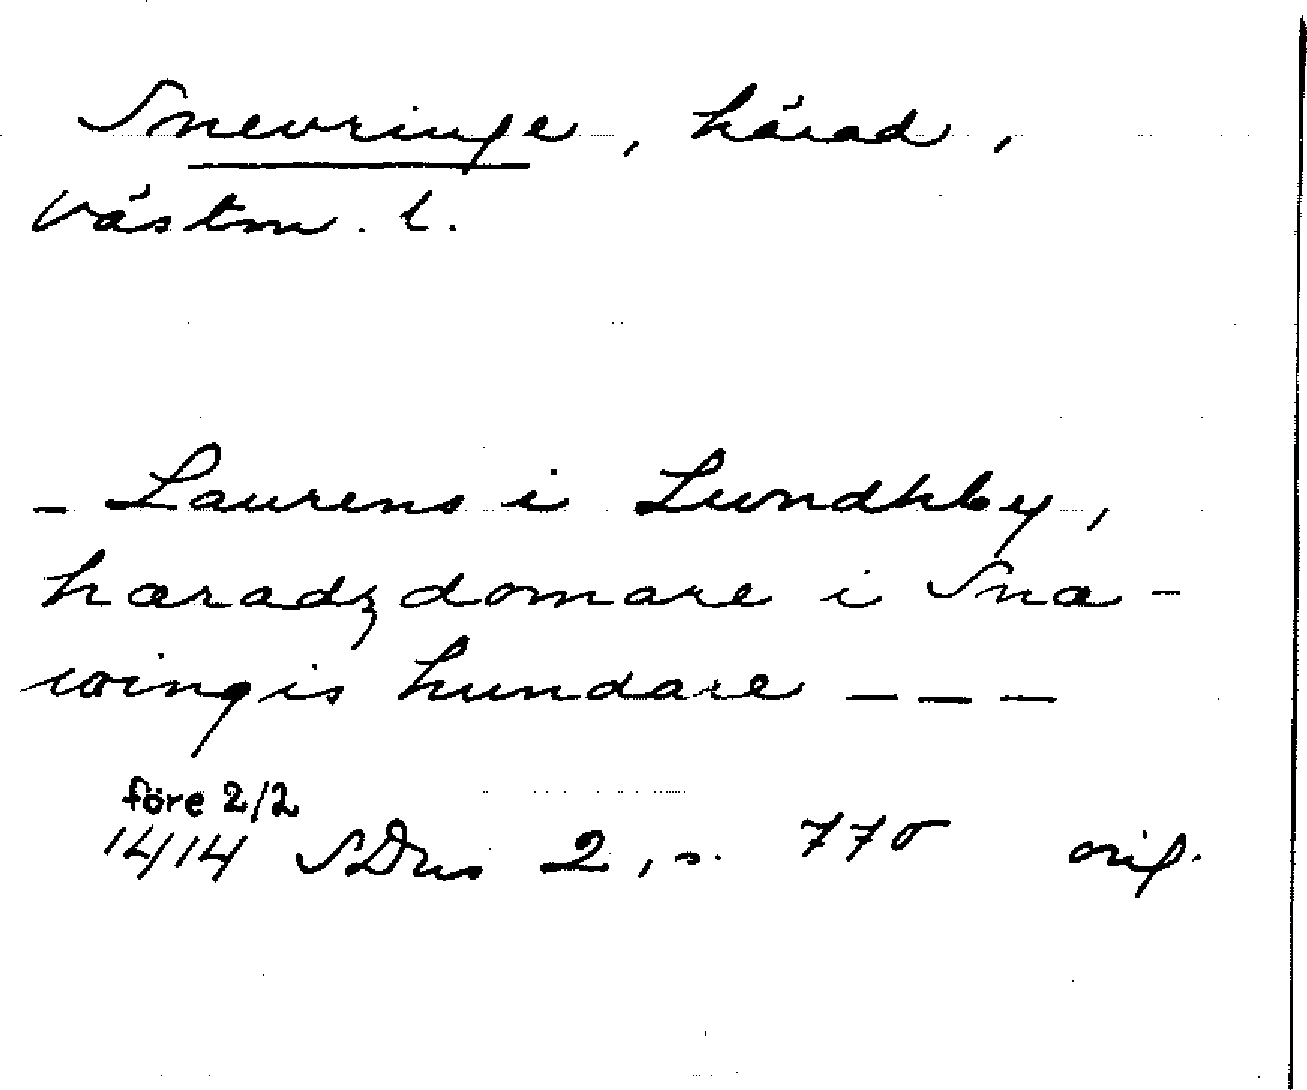 Snevringe, härad,
Västm. l.
- Laurens i Lundhby,
hæradzdomare i Snæ-
wingis hundare - - -
före 2/2
1414 SDns 2, s. 770 orig.